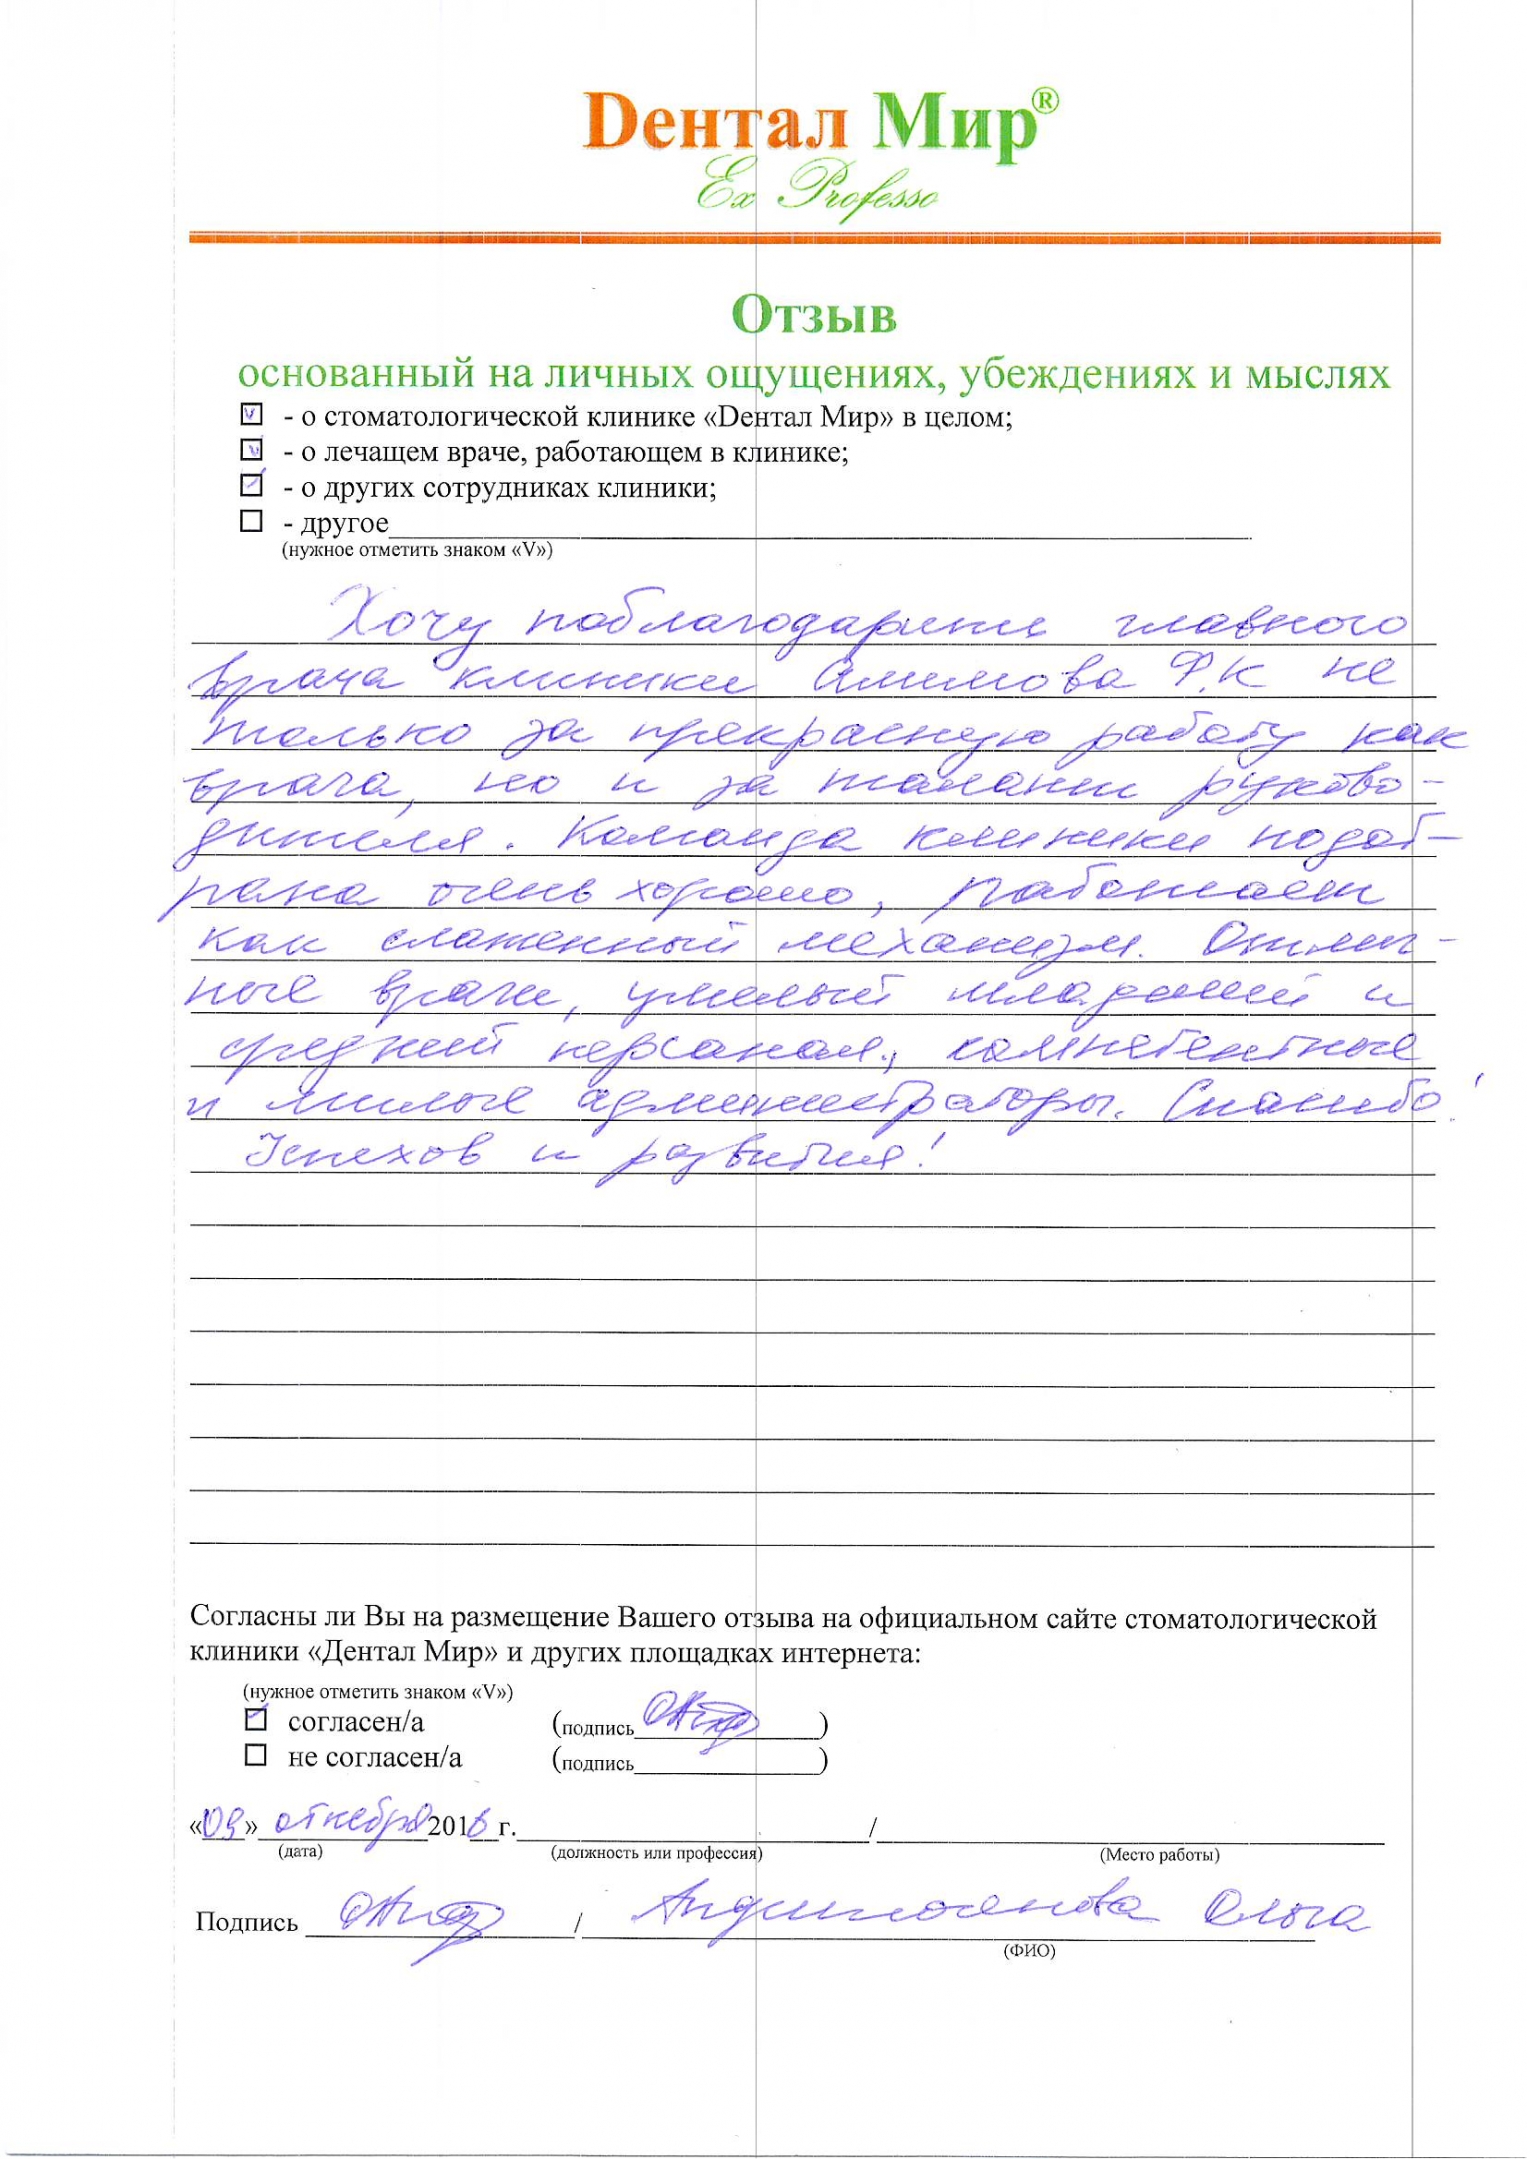 Dентал Мир®
Ex Professo
Отзыв
основанный на личных ощущениях, убеждениях и мыслях
- о стоматологической клинике «Dентал Мир» в целом;
- о лечащем враче, работающем в клинике;
- о других сотрудниках клиники;
- другое
(нужное отметить знаком «V»)
Хочу поблагодарить главного
врача клиники Алимова Ф.К не
только за прекрасную работу как
врача, но и за талант руково-
дителя. Команда клиники подоб-
рана очень хорошо, работает
как слаженный механизм. Отлич-
ные врачи, умелый младший и
средний персонал, компетентные
и милые администраторы. Спасибо!
Успехов и развития!
Согласны ли Вы на размещение Вашего отзыва на официальном сайте стоматологической
клиники «Дентал Мир» и других площадках интернета:
(нужное отметить знаком «V»)
согласен/а (подпись )
не согласен/а (подпись )
«09» октября 2016 г. /
(дата) (должность или профессия) (Место работы)
Подпись / Ольга
(ФИО)